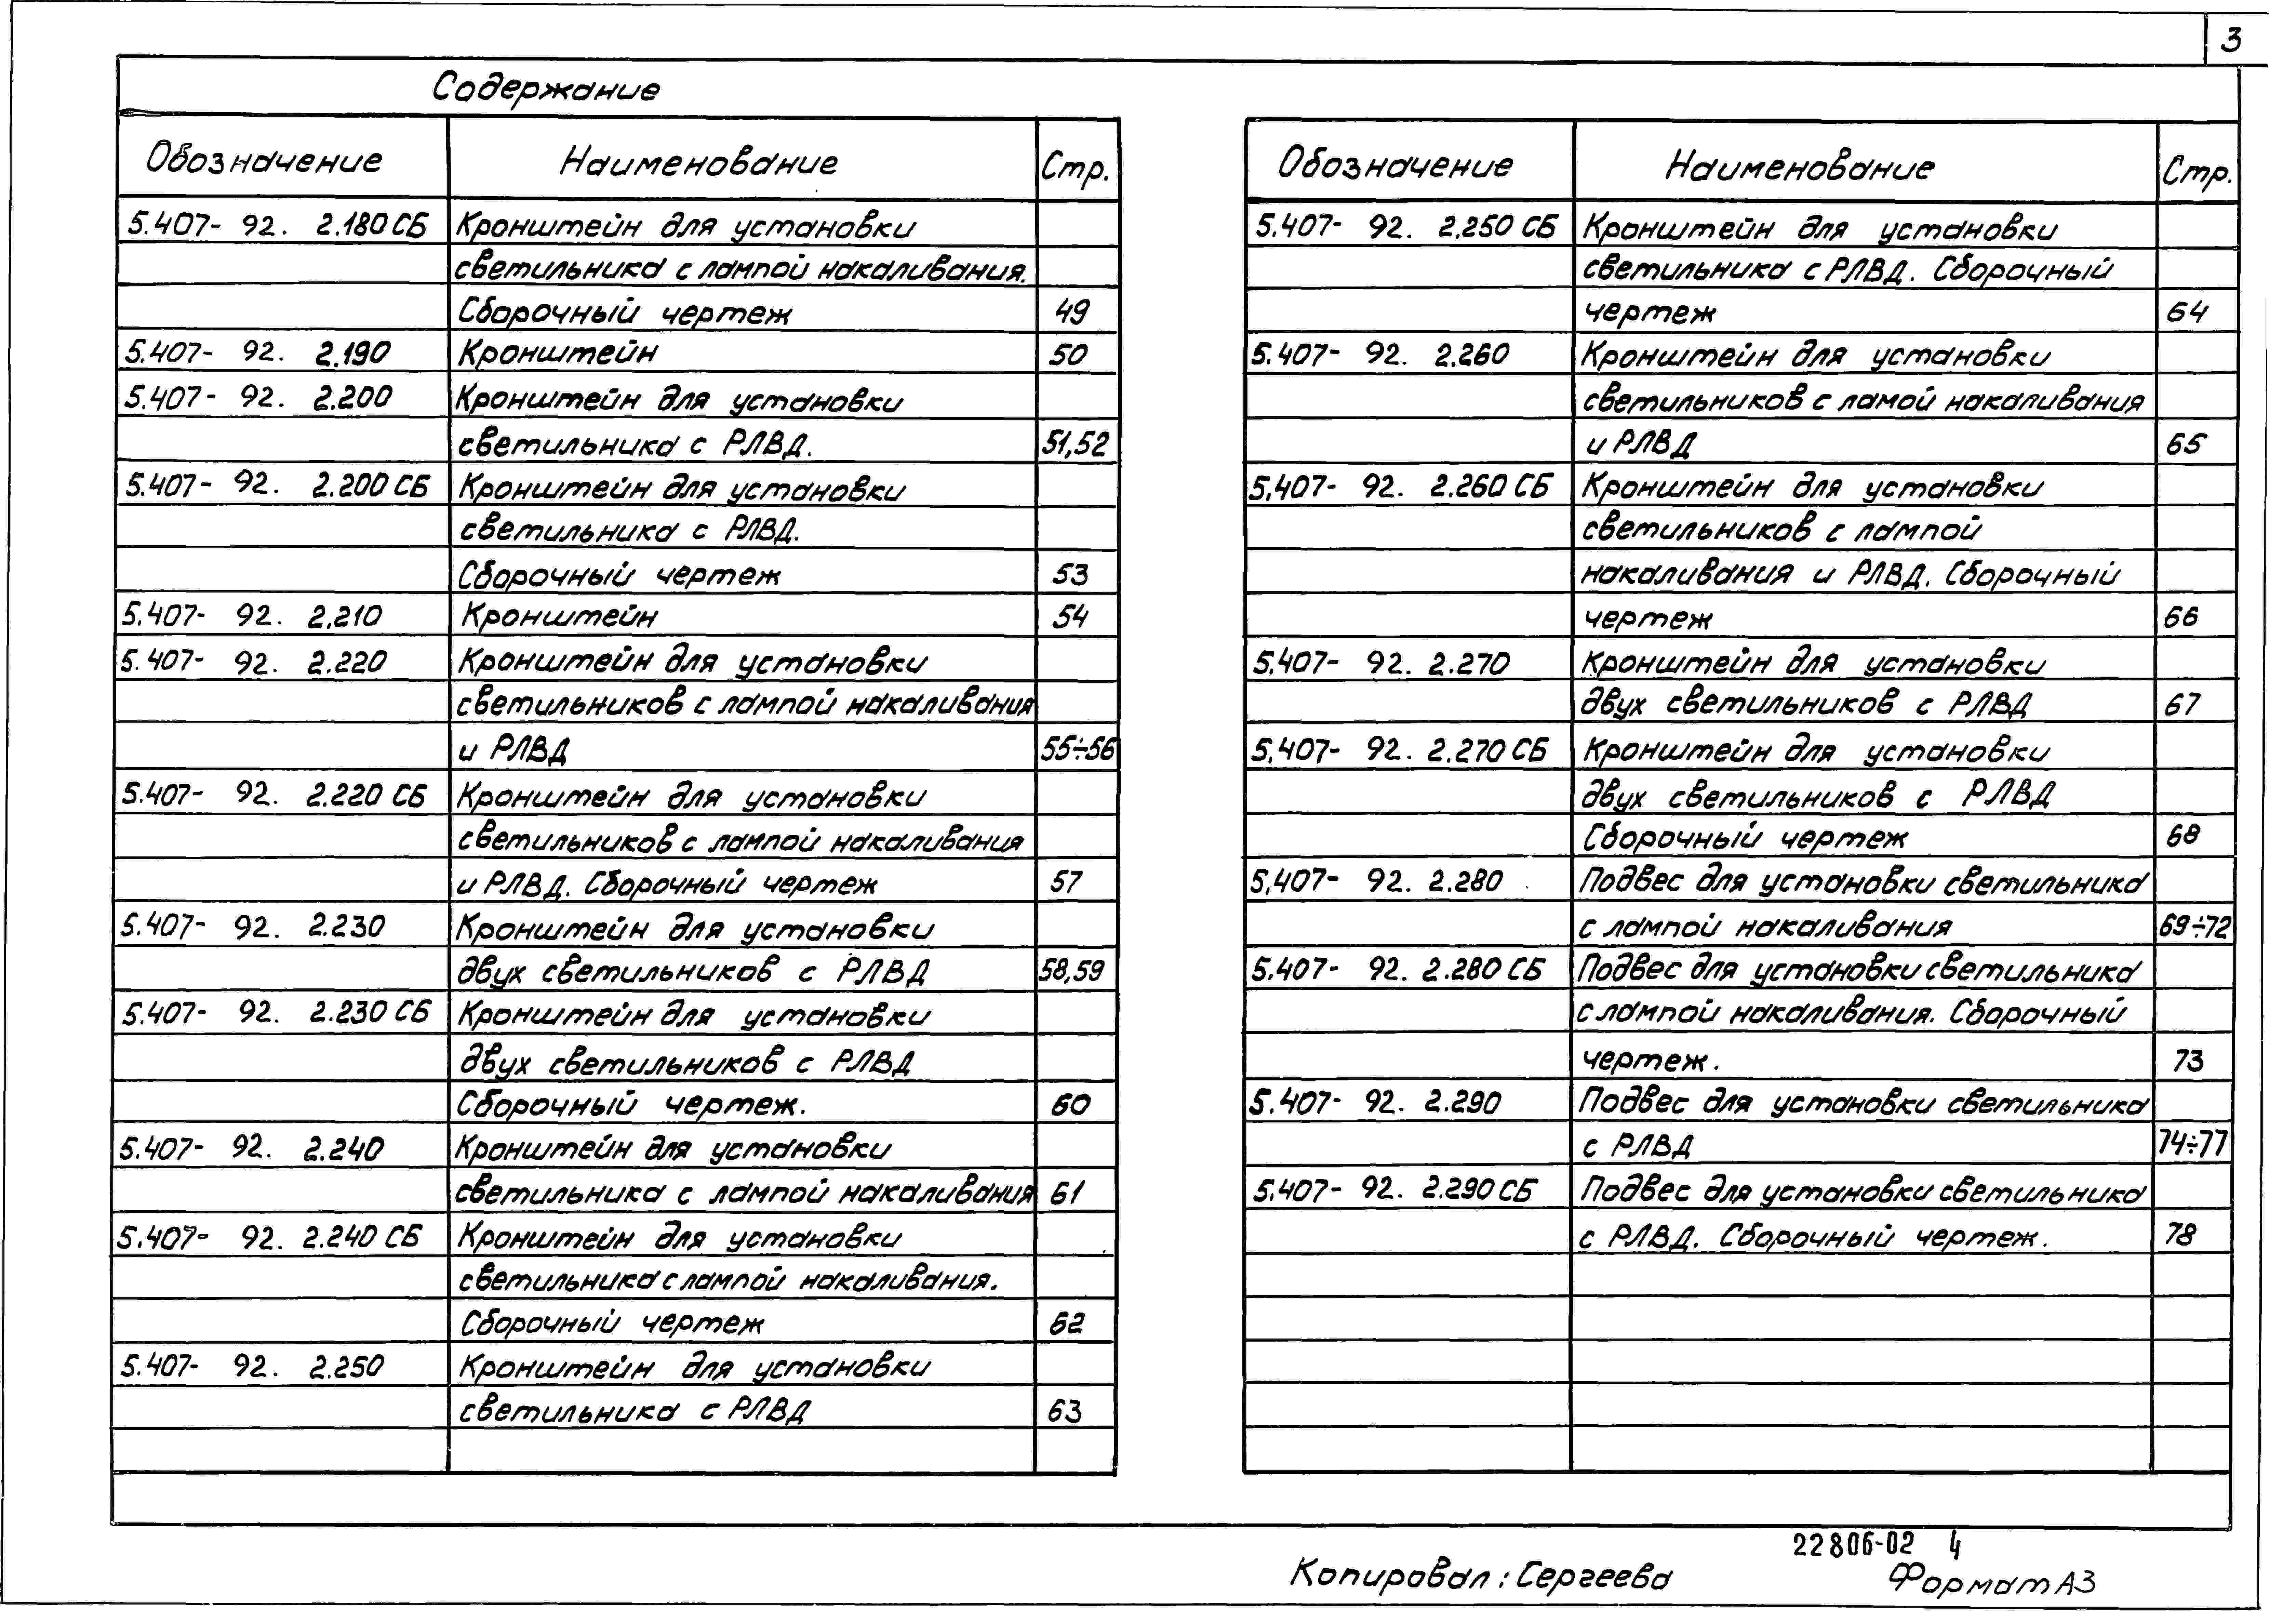 3
Содержание
Обозначение Наименование Стр.
5.407- 92. 2.180 СБ Кронштейн для установки
светильника с лампой накаливания.
Сборочный чертеж 49
5.407- 92. 2.190 Кронштейн 50
5.407- 92. 2.200 Кронштейн для установки
светильника с РЛВД. 51,52
5.407- 92. 2.200 СБ Кронштейн для установки
светильника с РЛВД.
Сборочный чертеж 53
5.407- 92. 2.210 Кронштейн 54
5.407- 92. 2.220 Кронштейн для установки
светильников с лампой накаливания
и РЛВД 55÷56
5.407- 92. 2.220 СБ Кронштейн для установки
светильников с лампой накаливания
и РЛВД. Сборочный чертеж 57
5.407- 92. 2.230 Кронштейн для установки
двух светильников с РЛВД 58,59
5.407- 92. 2.230 СБ Кронштейн для установки
двух светильников с РЛВД
Сборочный чертеж. 60
5.407- 92. 2.240 Кронштейн для установки
светильника с лампой накаливания 61
5.407- 92. 2.240 СБ Кронштейн для установки
светильника с лампой накаливания.
Сборочный чертеж 62
5.407- 92. 2.250 Кронштейн для установки
светильника с РЛВД 63
Обозначение Наименование Стр.
5.407- 92. 2.250 СБ Кронштейн для установки
светильника с РЛВД. Сборочный
чертеж 64
5.407- 92. 2.260 Кронштейн для установки
светильников с ламой накаливания
и РЛВД 65
5.407- 92. 2.260 СБ Кронштейн для установки
светильников с лампой
накаливания и РЛВД. Сборочный
чертеж 66
5.407- 92. 2.270 Кронштейн для установки
двух светильников с РЛВД 67
5.407- 92. 2.270 СБ Кронштейн для установки
двух светильников с РЛВД
Сборочный чертеж 68
5.407- 92. 2.280 Подвес для установки светильника
с лампой накаливания 69÷72
5.407- 92. 2.280 СБ Подвес для установки светильника
с лампой накаливания. Сборочный
чертеж. 73
5.407- 92. 2.290 Подвес для установки светильника
с РЛВД 74÷77
5.407- 92. 2.290 СБ Подвес для установки светильника
с РЛВД. Сборочный чертеж. 78
22806-02 4
Копировал: Сергеева Формат А3